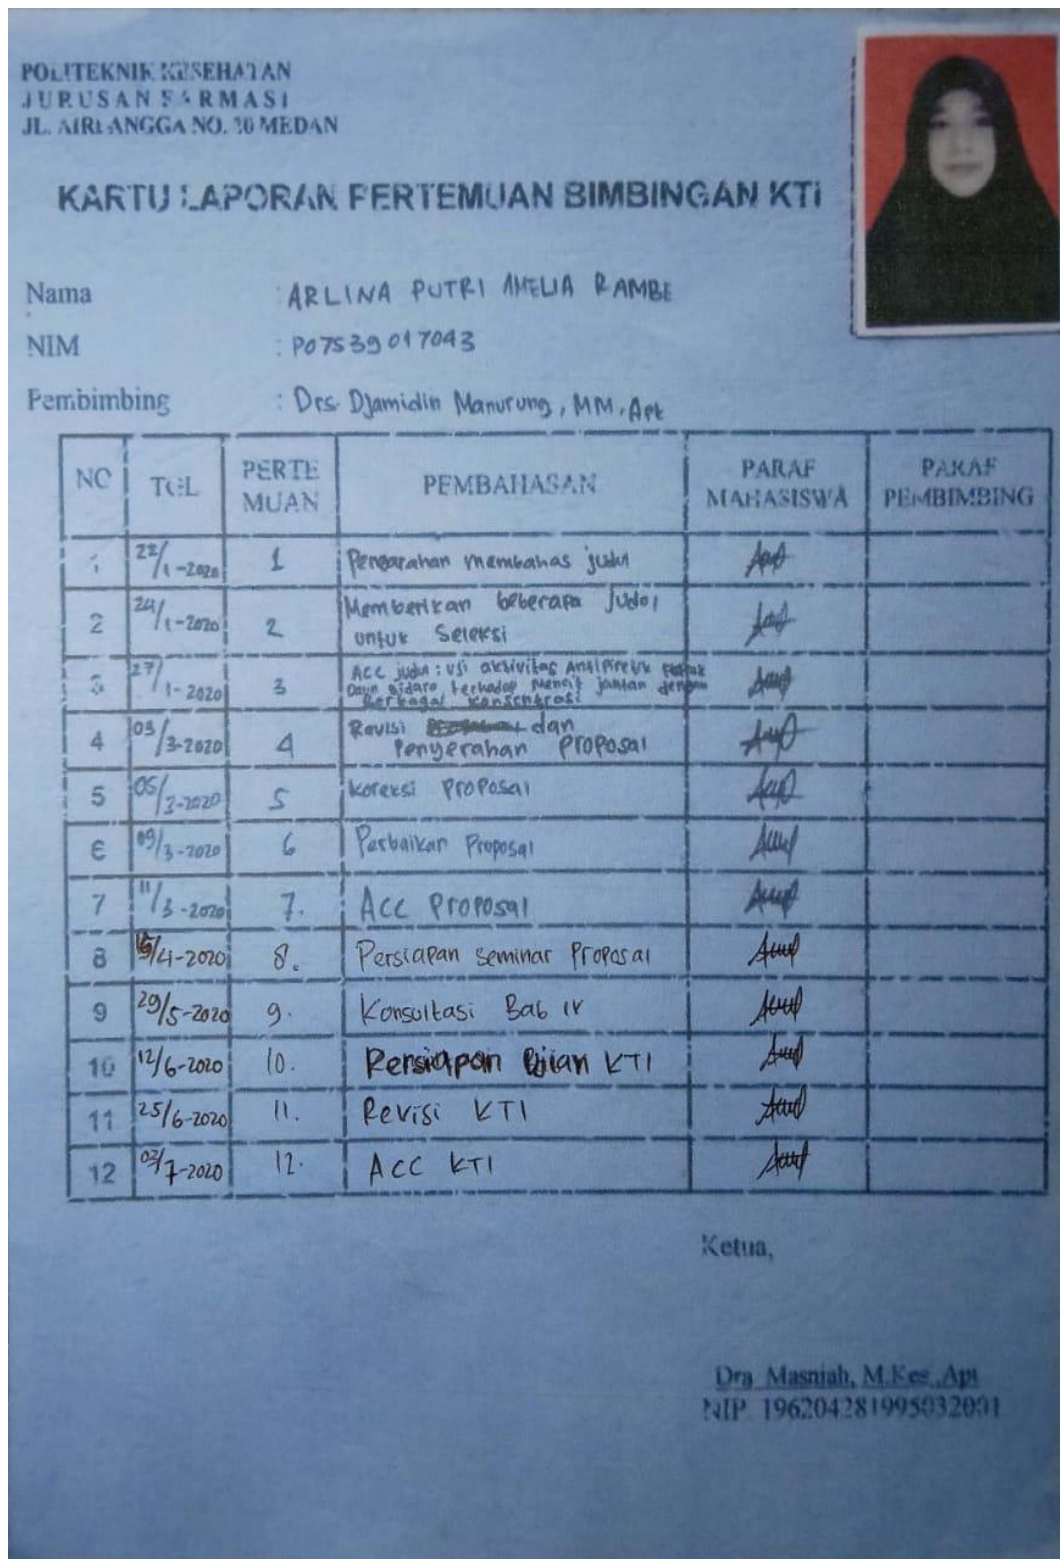 POLITEKNIK KESEHATAN
JURUSAN FARMASI
JL. AIRLANGGA NO. 20 MEDAN
KARTU LAPORAN PERTEMUAN BIMBINGAN KTI
Nama : ARLINA PUTRI AMELIA RAMBE
NIM : P07539017043
Pembimbing : Drs. Djamidin Manurung, MM, Apt
NO TGL PERTE MUAN PEMBAHASAN PARAF MAHASISWA PARAF PEMBIMBING
1 22/1-2020 1 Pengarahan membahas judul
2 24/1-2020 2 Memberikan beberapa Judul
untuk Seleksi
3 27/1-2020 3 ACC judul : Uji aktivitas Antipiretik
Daun bidara terhadap Mencit jantan dengan
Berbagai konsentrasi
4 03/3-2020 4 Revisi dan
Penyerahan Proposal
5 05/3-2020 5 Koreksi Proposal
6 09/3-2020 6 Perbaikan Proposal
7 11/3-2020 7. Acc Proposal
8 15/4-2020 8. Persiapan Seminar Proposal
9 29/5-2020 9. Konsultasi Bab IV
10 12/6-2020 10. Persiapan Ujian KTI
11 25/6-2020 11. Revisi KTI
12 02/7-2020 12. ACC KTI
Ketua,
Dra. Masniah, M.Kes, Apt
NIP. 196204281995032001